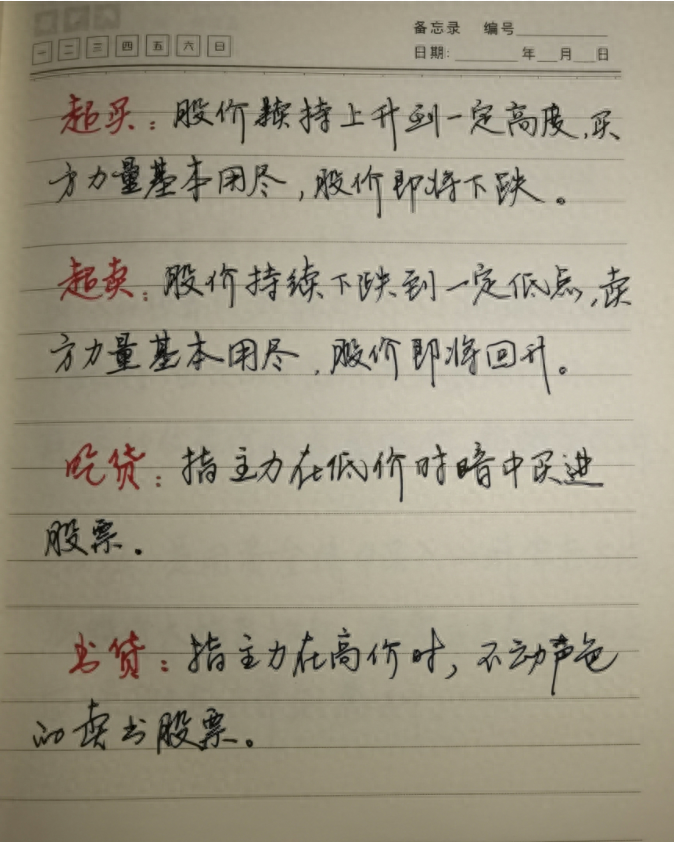 备忘录 编号
一 二 三 四 五 六 日
日期: 年 月 日
超买：股价持上升到一定高度，买
方力量基本用尽，股价即将下跌。
超卖：股价持续下跌到一定低点，卖
方力量基本用尽，股价即将回升。
吃货：指主力在低价时暗中买进
股票。
出货：指主力在高价时，不动声色
的卖出股票。